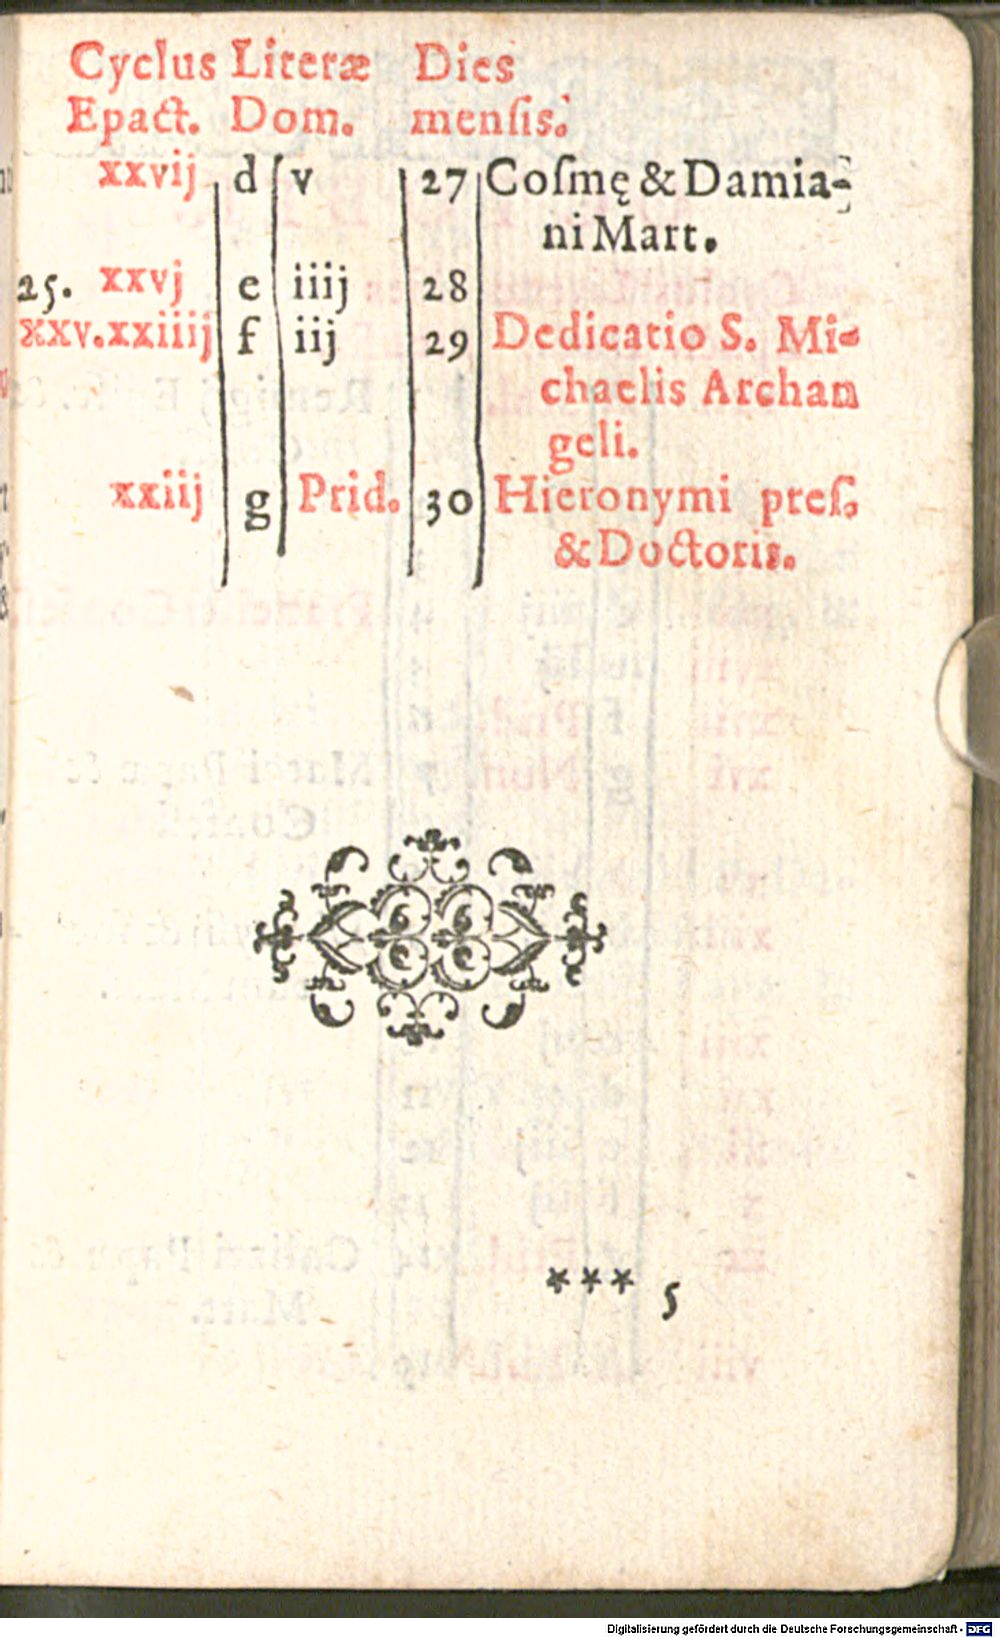 Cyclus Literæ Dies
Epact. Dom. mensis.
xxvij d v 27 Coſmę & Damia-
ni Mart.
25. xxvj e iiij 28
xxv.xxiiij f iij 29 Dedicatio S. Mi-
chaelis Archan
geli.
xxiij g Prid. 30 Hieronymi preſ.
& Doctoris.
*** 5
Digitalisierung gefördert durch die Deutsche Forschungsgemeinschaft - DFG